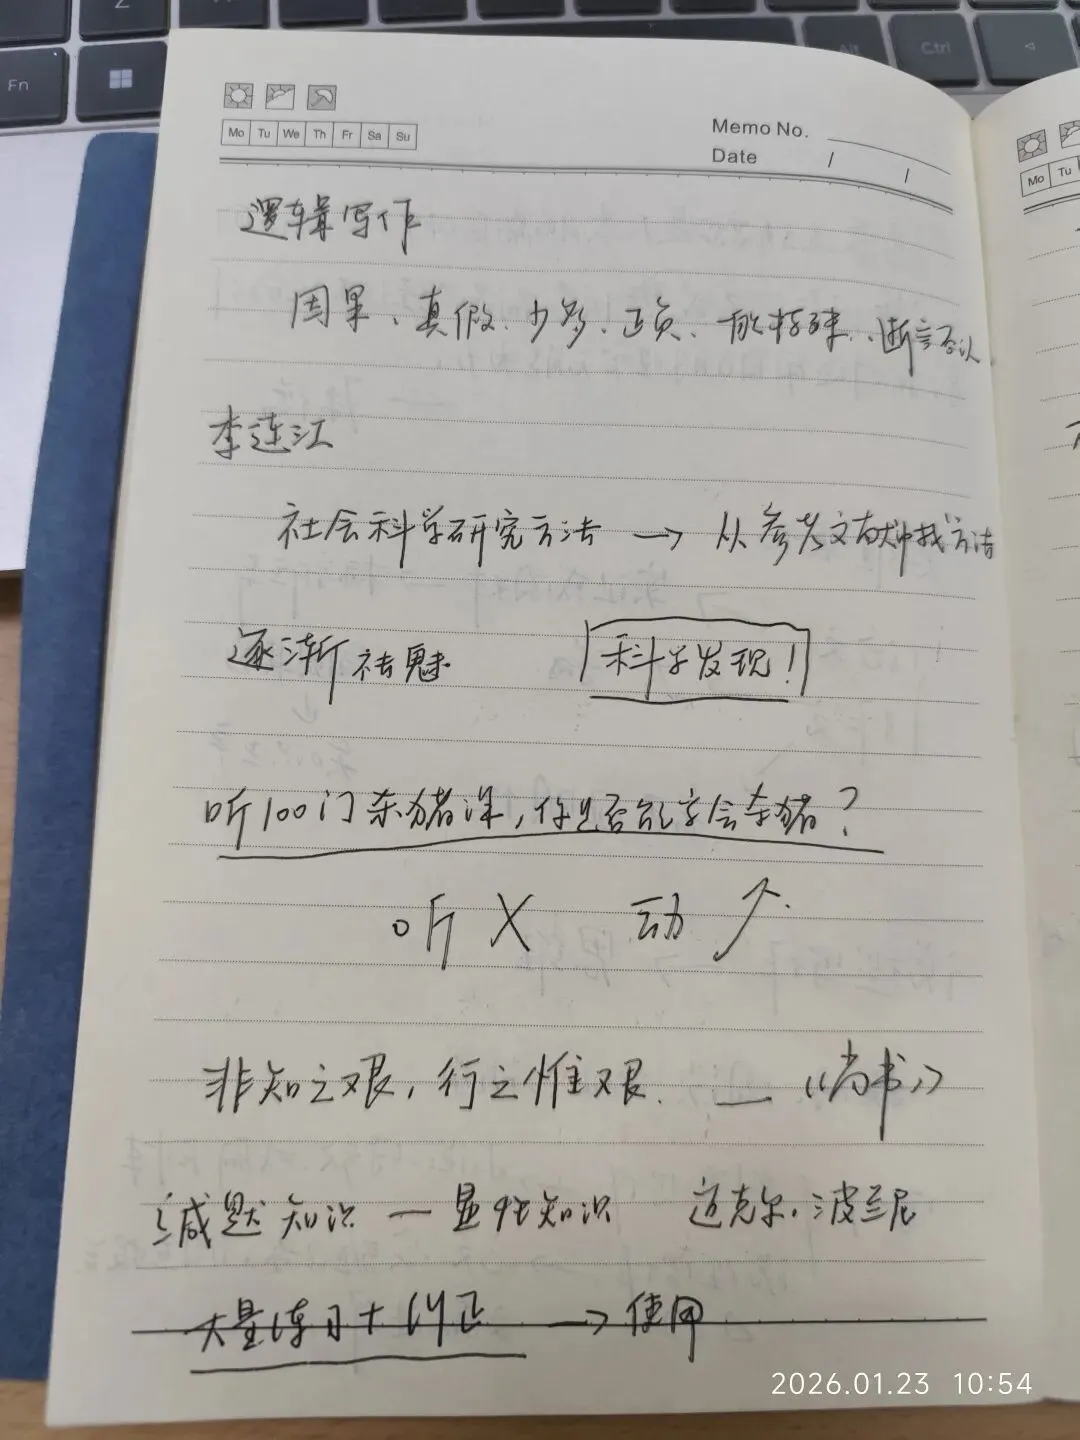 Fn
Alt
Ctrl
Mo Tu We Th Fr Sa Su
Memo No.
Date / /
Mo Tu
逻辑写作
因果、真假、少多、正负、断言否认
李连江
社会科学研究方法 → 从参考文献中找方法
逐渐祛魅 科学发现!
听100门杀猪课,你是否能学会杀猪?
听 X 动 ↗.
非知之艰,行之惟艰. — 《尚书》
缄默知识 — 显性知识 迈克尔.波兰尼
大量练习+纠正 → 使用
2026.01.23 10:54